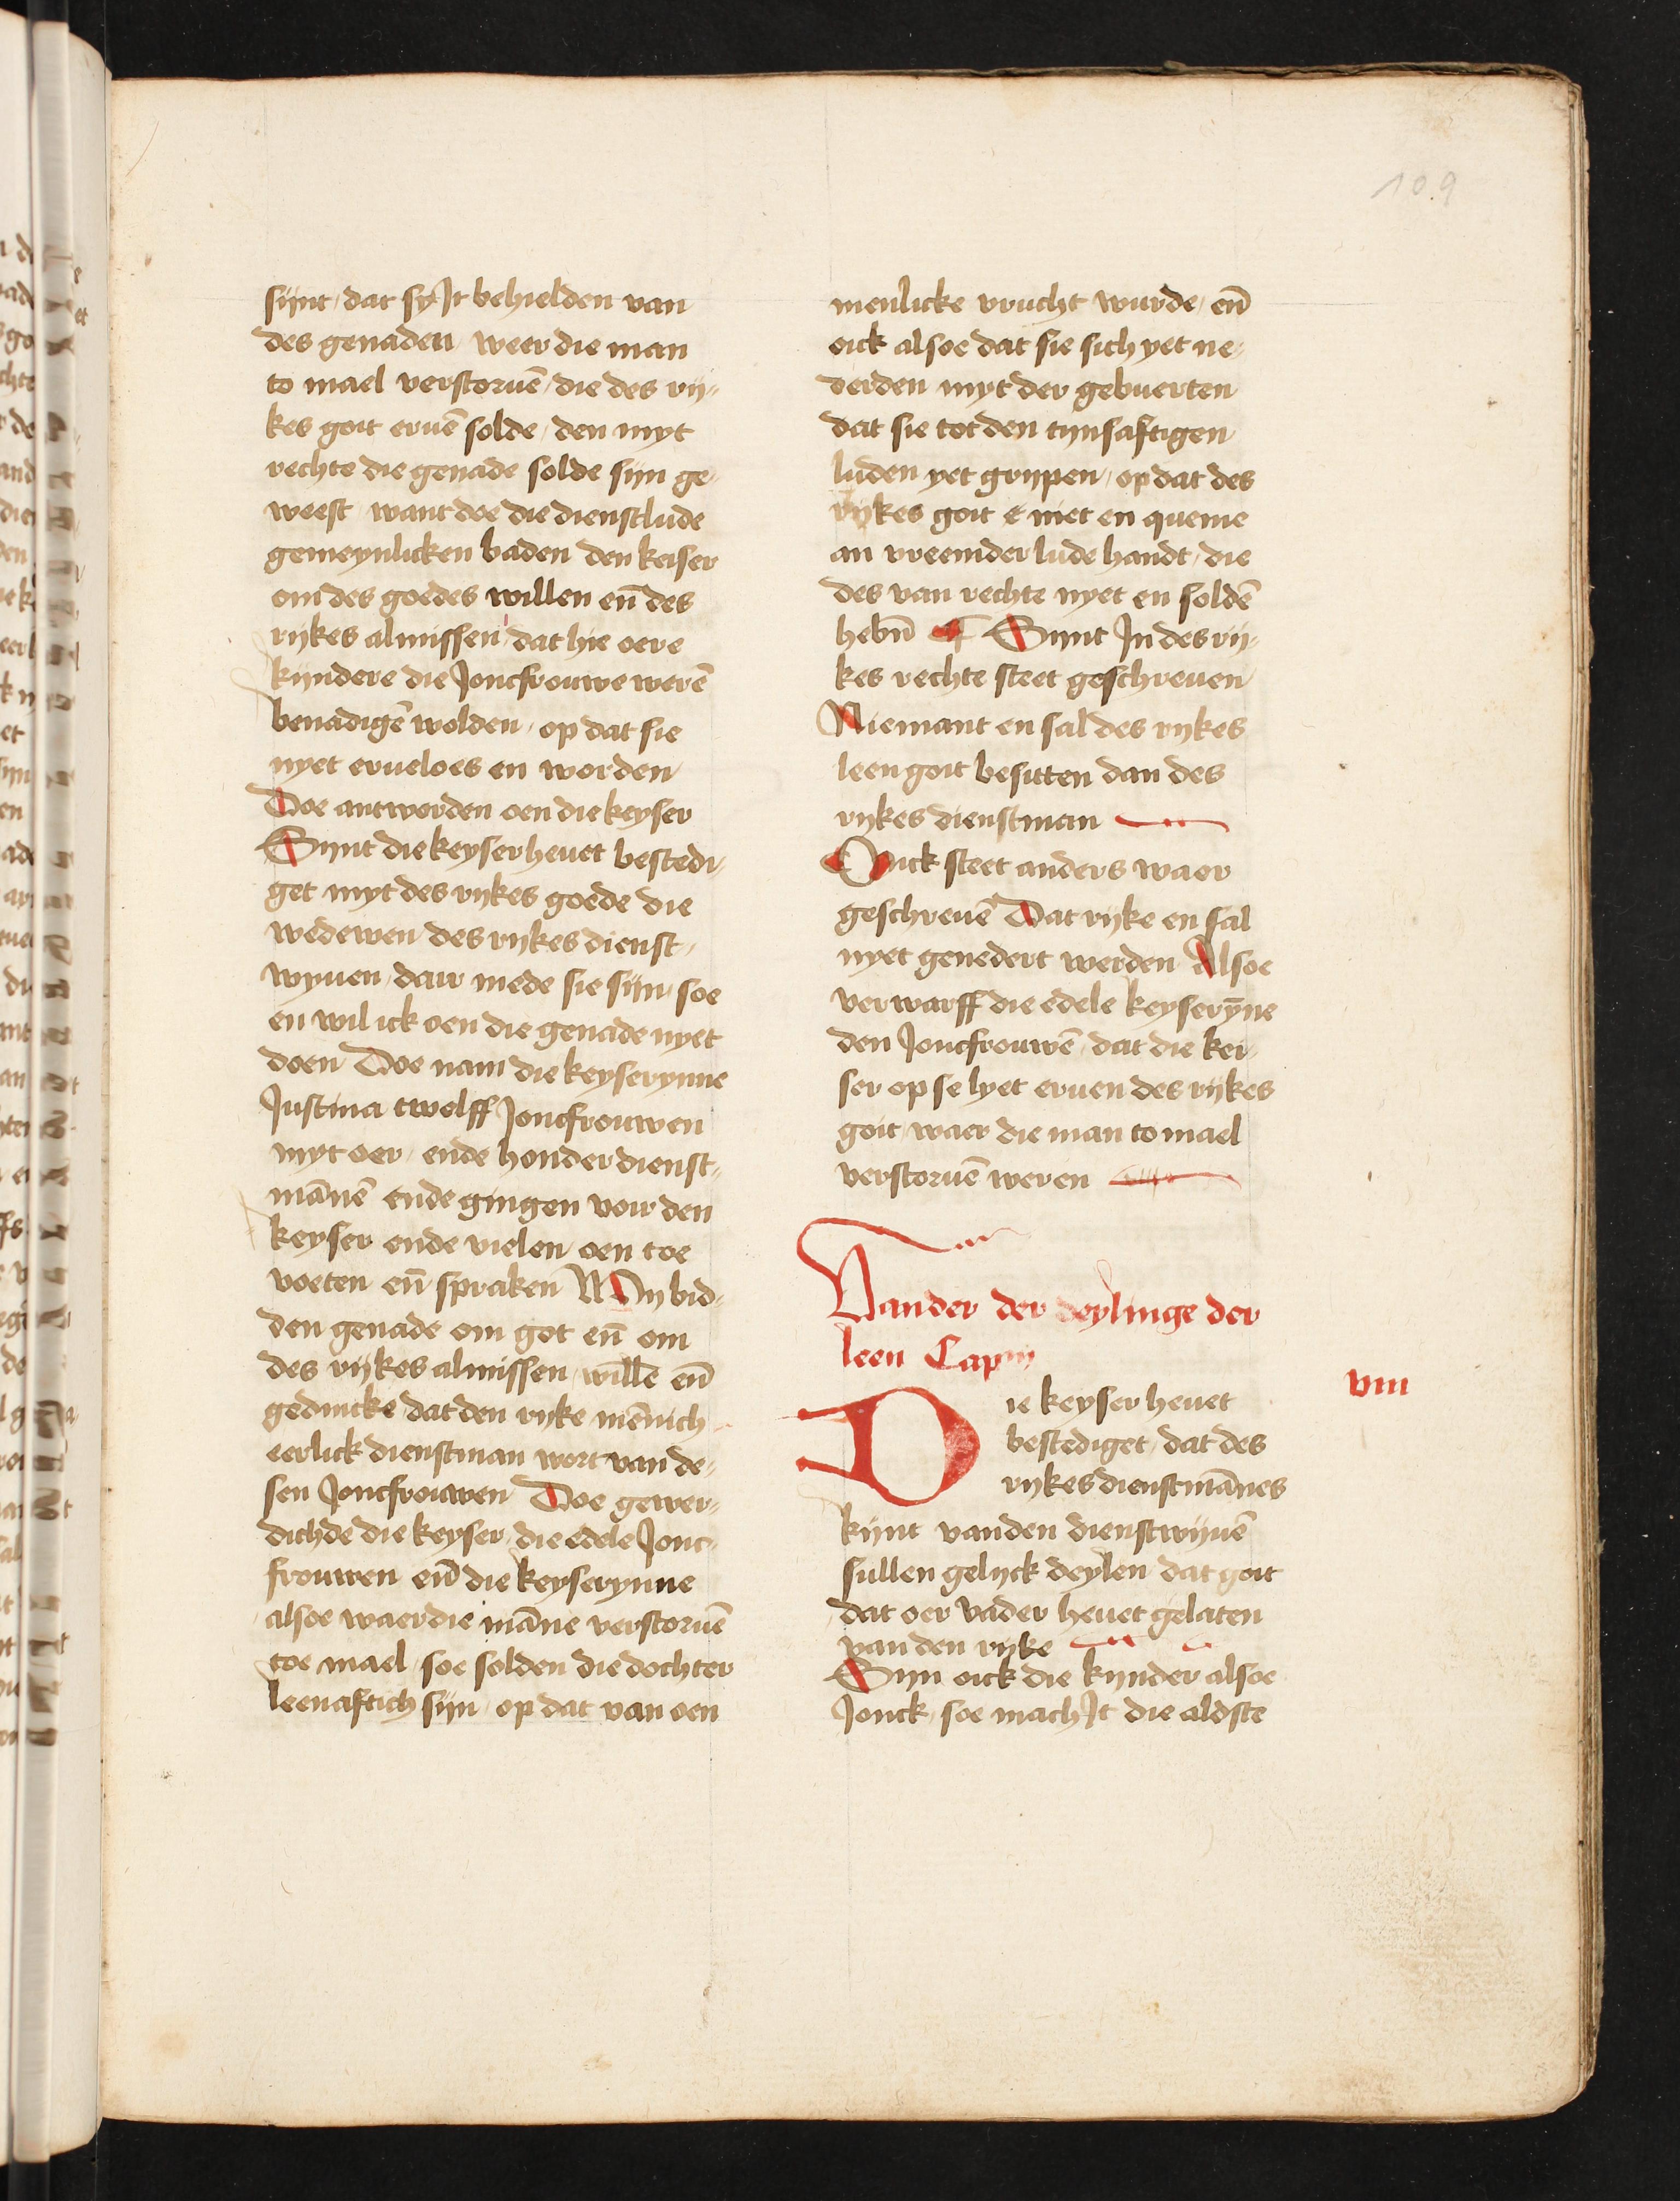 109
sijnt / dat sy It behielden van
des genaden / weer die man
to mael verstoruē / die des rij-
kes goit eruē solde / den myt
rechte die genade solde sijn ge-
weest / want doe die dienstlude
gemeynlicken baden den keiser
om des goedes willen eñ des
rijkes almissen / dat hie oere
kijndere die Joncfrouwe werē
benadigē wolden / op dat sie
nyet erueloes en worden
Doe antworden oen die keyser
Sijnt die keyser heuet bestedi-
get myt des rijkes goede die
wedewen des rijkes dienst-
wyuen / dair mede sie sijn / soe
en wil ick oen die genade nyet
doen Doe nam die keyserynne
Justina twelff Joncfrouwen
myt oer / ende honder dienst-
mānē ende gingen voir den
keyser ende vielen oen toe
voeten eñ spraken Wy bid-
den genade om got eñ om
des rijkes almissen / willē eñ
gedincke / dat den rijke mēnich
eerlick dienstman wort van de-
sen Joncfrouwen Doe gewer-
dichde die keyser / die edele Jonc-
frouwen eñ die keyserynne
alsoe waer die māne verstoruē
toe mael / soe solden die dochter
leenaftich sijn / op dat van oen
menlicke vrucht wurde / eñ
oick alsoe dat sie sich yet ne-
derden myt der gebuerten
dat sie tot den tijnsaftigen
luden yet grijpen / op dat des
rijkes goit niet en queme
an vreemder lude handt / die
des van rechte nyet en soldē
hebn̄ ¶ Sijnt In des rij-
kes rechte steet geschreuen
Niemant en sal des rijkes
leen goit besitten dan des
rijkes dienstman
Oick steet anders waer
geschreuē Dat rijke en sal
nyet genedert werden Alsoe
verwarff die edele keyserȳne
den Joncfrouwē / dat die kei-
ser op se lyet eruen des rijkes
goit / waer die man to mael
verstoruē weren
Vander der deylinge der
leen Cap
viii
Die keyser heuet
bestediget / dat des
rijkes dienstmānes
kijnt vanden dienstwijuē
sullen gelijck deylen dat goit
dat oer vader heuet gelaten
van den rijke
Sijn oick die kijnder alsoe
Jonck / soe mach It die aldste